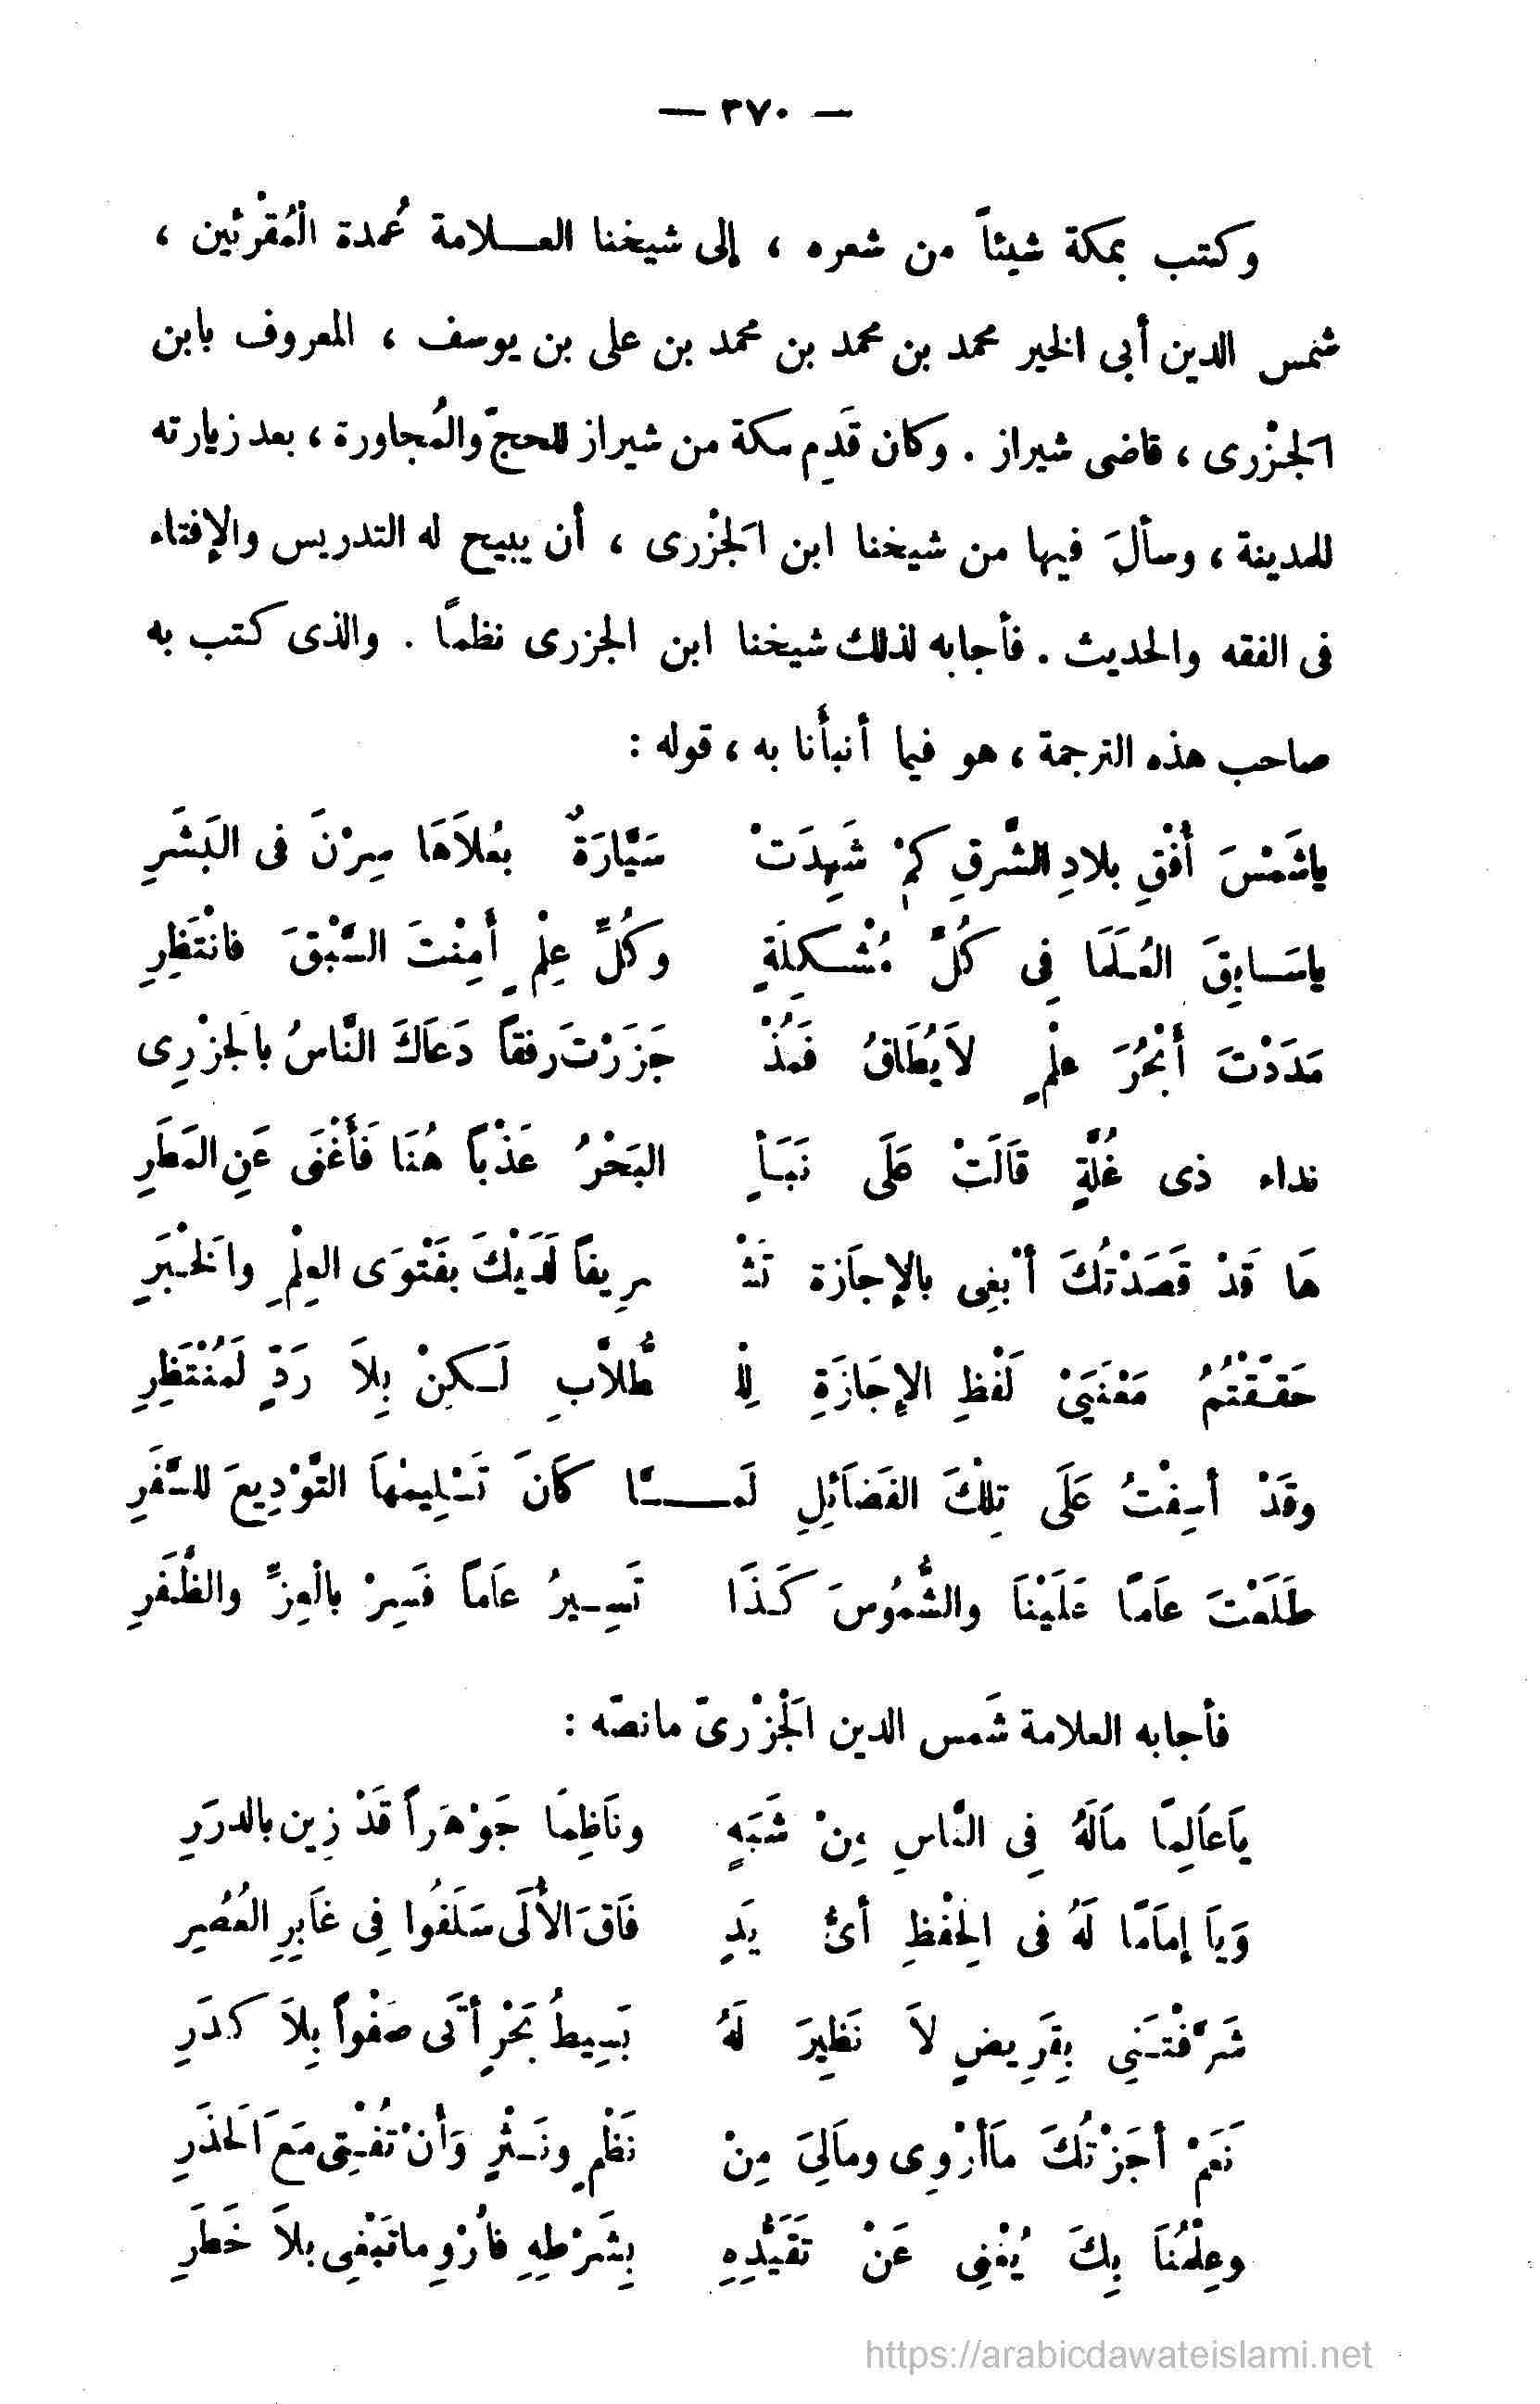 — ٣٧٠ —
وكتب بمكة شيئاً من شعره ، إلى شيخنا العلامة عُمدة الْمُقْرئين ،
شمس الدين أبى الخير محمد بن محمد بن محمد بن على بن يوسف ، المعروف بابن
الَجْزرى ، قاضى شيراز . وكان قَدِم مكة من شيراز للحجّ والُمجاورة ، بعد زيارته
للمدينة ، وسألَ فيها من شيخنا ابن الَجْزرى ، أن يبيح له التدريس والإفتاء
فى الفقه والحديث . فأجابه لذلك شيخنا ابن الجزرى نظماً . والذى كتب به
صاحب هذه الترجمة ، هو فيما أنبأنا به ، قوله :
ياشَمْسَ أُفْقِ بلادِ الشَّرقِ كَمْ شَهِدَتْ سَيَّارَةٌ بعُلاَهَا سِرْنَ فى البَشَرِ
ياسَابِقَ العُلَمَا فِى كُلِّ مُشْكِلَةٍ وكُلِّ عِلْمٍ أَمِنْتَ السَّبْقَ فانْتَظِرِ
مَدَدْتَ أَبْحُرَ علْمٍ لاَيُطَاقُ فَمُذْ جَزَرْتَ رفقاً دَعَاكَ النَّاسُ بالَجزْرِى
نداء ذى غُلَّةٍ قَالَتْ عَلَى نَبَأٍ البَحْرُ عَذْباً هُنَا فَأَغْنَى عَنِ المَطَرِ
هَا قَدْ قَصَدْتُكَ أبْغِى بالإجاَزة تَشْ رِيفاً لَدَيْكَ بفَتْوَى العِلْمِ والَخْبَرِ
حَقَّقْتُمُ مَعْنَيَىْ لَفْظِ الإجَازَةِ لِلْ طُّلاَّبِ لَكِنْ بِلاَ رَدٍّ لَمُنْتَظِرِ
وقَدْ أسِفْتُ عَلَى تِلْكَ الفَضَائِلِ لَمَّا كَانَ تَسْلِيمُهَا التَّوْدِيعَ للسَّفَرِ
طَلَعْتَ عَامًا عَلَيْنَا والشُّمُوسَ كَذَا تَسِيرُ عَاماً فَسِرْ بالْعِزِّ والظَّفَرِ
فأجابه العلامة شَمس الدين الَجْزرىّ مانصّه :
يَاعَالِمًا مالَهُ فِى النَّاسِ مِنْ شَبَهٍ ونَاظِمًا جَوْهَراً قَدْ زِين بالدرَرِ
وَيَا إمَامًا لَهُ فى الِحفْظِ أىُّ يَدٍ فَاقَ الأُلَى سَلَفُوا فِى غَابِرِ العُصُرِ
شَرَّفْتَنِى بِقَرِيضٍ لاَ نَظِيرَ لَهُ بَسِيطُ بَحْرٍ أتَى صَفْواً بِلاَ كدَرِ
نَعَمْ أجَزْتُكَ مَاأرْوِى ومالِىَ مِنْ نَظْمٍ ونَثْرٍ وَأَنْ تُفْتِى مَعَ الَحذَرِ
وعِلْمُنَا بِكَ يُغْنِى عَنْ تَقَيُّدِهِ بِشَرْطِهِ فاُرْوِ ماتَبْغِى بلاَ خَطَرِ
https://arabicdawateislami.net